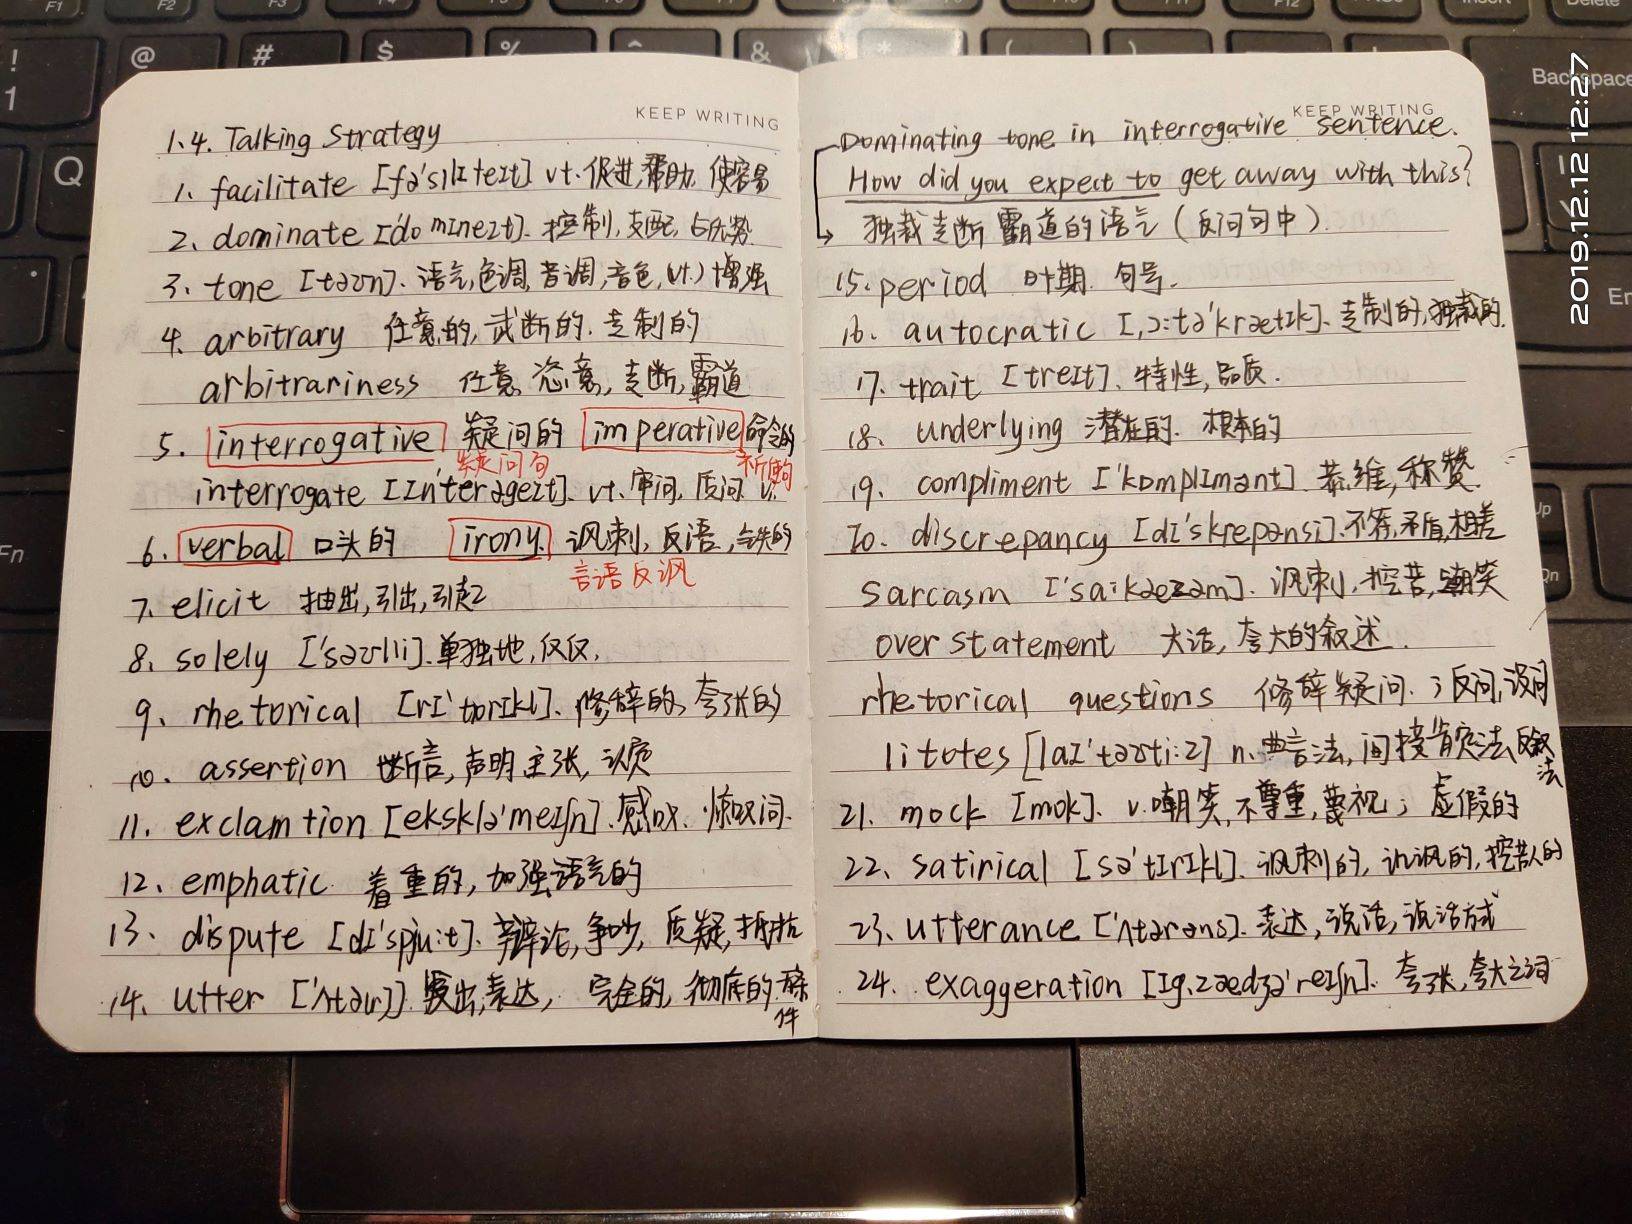 KEEP WRITING
1.4. Talking Strategy
1. facilitate [fə'sIlIteIt] vt. 促进,帮助,使容易
2. dominate ['dɒmIneIt]. 控制,支配,占优势
3. tone [təʊn]. 语气,色调,音调,音色,(vt.)增强
4. arbitrary 任意的,武断的.专制的
arbitrariness 任意,恣意,专断,霸道
5. interrogative 疑问的 imperative 命令的
疑问句 祈使句
interrogate [In'terəgeIt]. vt.审问,质问 vi.
6. verbal 口头的 irony. 讽刺,反语,铁的
言语反讽
7. elicit 抽出,引出,引起
8. solely ['səʊlli].单独地,仅仅,
9. rhetorical [rI'tɒrIkl]. 修辞的,夸张的
10. assertion 断言,声明主张,认定
11. exclamtion [eksklə'meIʃn].感叹.惊叹词.
12. emphatic. 着重的,加强语气的
13. dispute [dI'spju:t]. 辩论,争吵,质疑,抵抗
14. utter ['ʌtə(r)]. 发出,表达, 完全的,彻底的.无条件
KEEP WRITING
Dominating tone in interrogative sentence.
How did you expect to get away with this?
独裁专断霸道的语气(反问句中).
15. period 时期. 句号.
16. autocratic [,ɔ:tə'krætIk]. 专制的,独裁的.
17. trait [treIt]. 特性,品质.
18. underlying 潜在的. 根本的
19. compliment ['kɒmplImənt]. 恭维,称赞.
20. discrepancy [dI'skrepənsi].不符,矛盾,相差
sarcasm ['sɑ:kæzəm]. 讽刺,挖苦,嘲笑
overstatement 大话,夸大的叙述.
rhetorical questions 修辞疑问.;反问,设问
litotes [laI'təʊti:z] n.曲言法,间接肯定法,反叙法
21. mock [mɒk]. v.嘲笑,不尊重,蔑视;虚假的
22. satirical [sə'tIrIkl]. 讽刺的,讥讽的,挖苦人的
23. utterance ['ʌtərəns]. 表达,说话,说话方式
24. exaggeration [Ig,zædʒə'reIʃn]. 夸张,夸大之词
2019.12.12 12:27
! 1
@
#
$
%
&
*
(
)
Q
Fn
Backspace
Insert
Delete
F1
F2
F3
F12